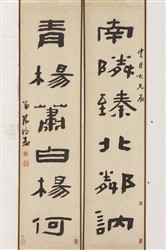 南隣臻北鄰訥
青楊蕭白楊何